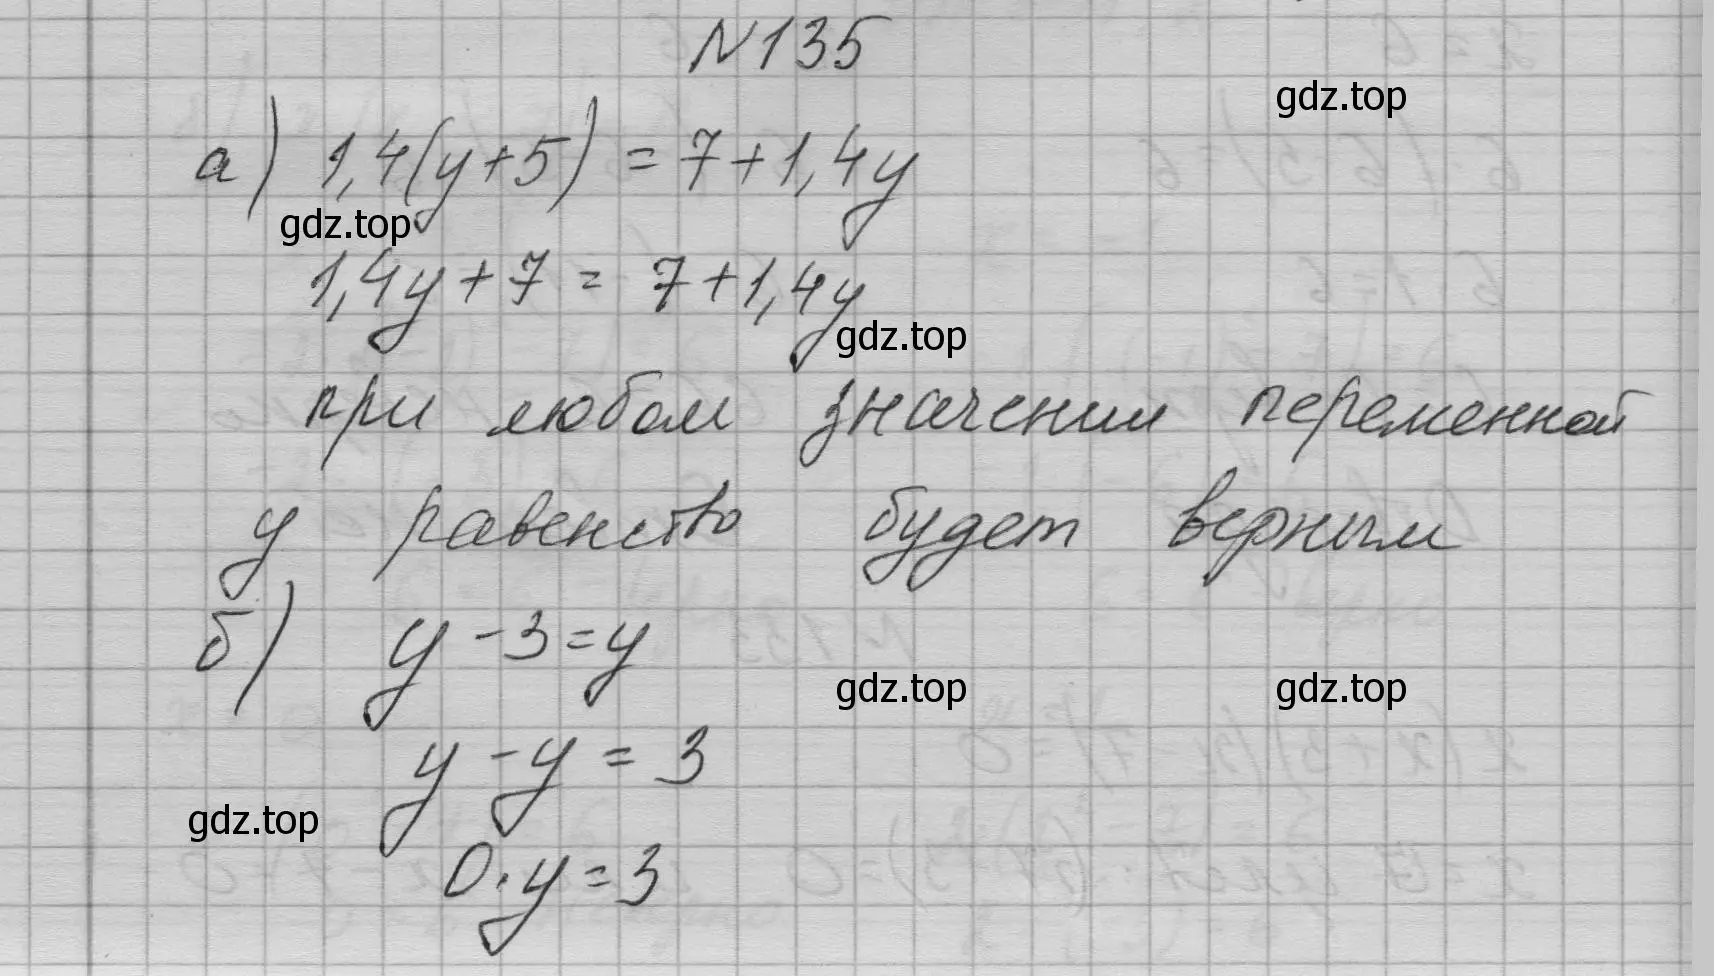 N135
gdz.top
а) 1,4(y+5) = 7+1,4y
gdz.top
1,4y+7 = 7+1,4y
gdz.top
при любом значении переменной
y равенство будет верным
б) y-3=y
gdz.top gdz.top
y-y=3
gdz.top
0·y=3